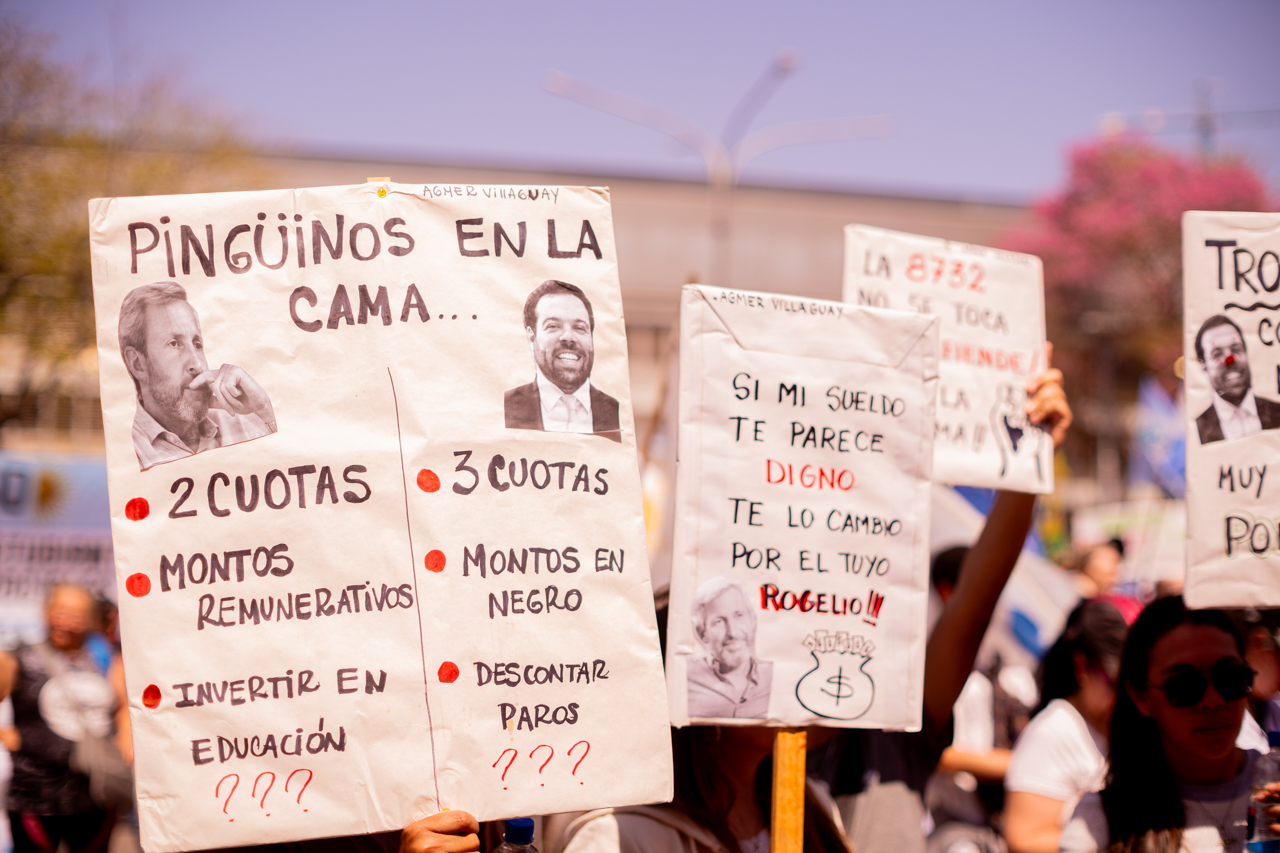 AGMER VILLAGUAY
PINGÜiNOS EN LA
CAMA...
2 CUOTAS
MONTOS
REMUNERATIVOS
INVERTIR EN
EDUCACIÓN
???
3 CUOTAS
MONTOS EN
NEGRO
DESCONTAR
PAROS
???
.AGMER VILLAGUAY
SI MI SUELDO
TE PARECE
DIGNO
TE LO CAMBIO
POR EL TUYO
ROGELIO!!!
$
LA 8732
NO SE TOCA
LA
TRO
CO
MUY
PO